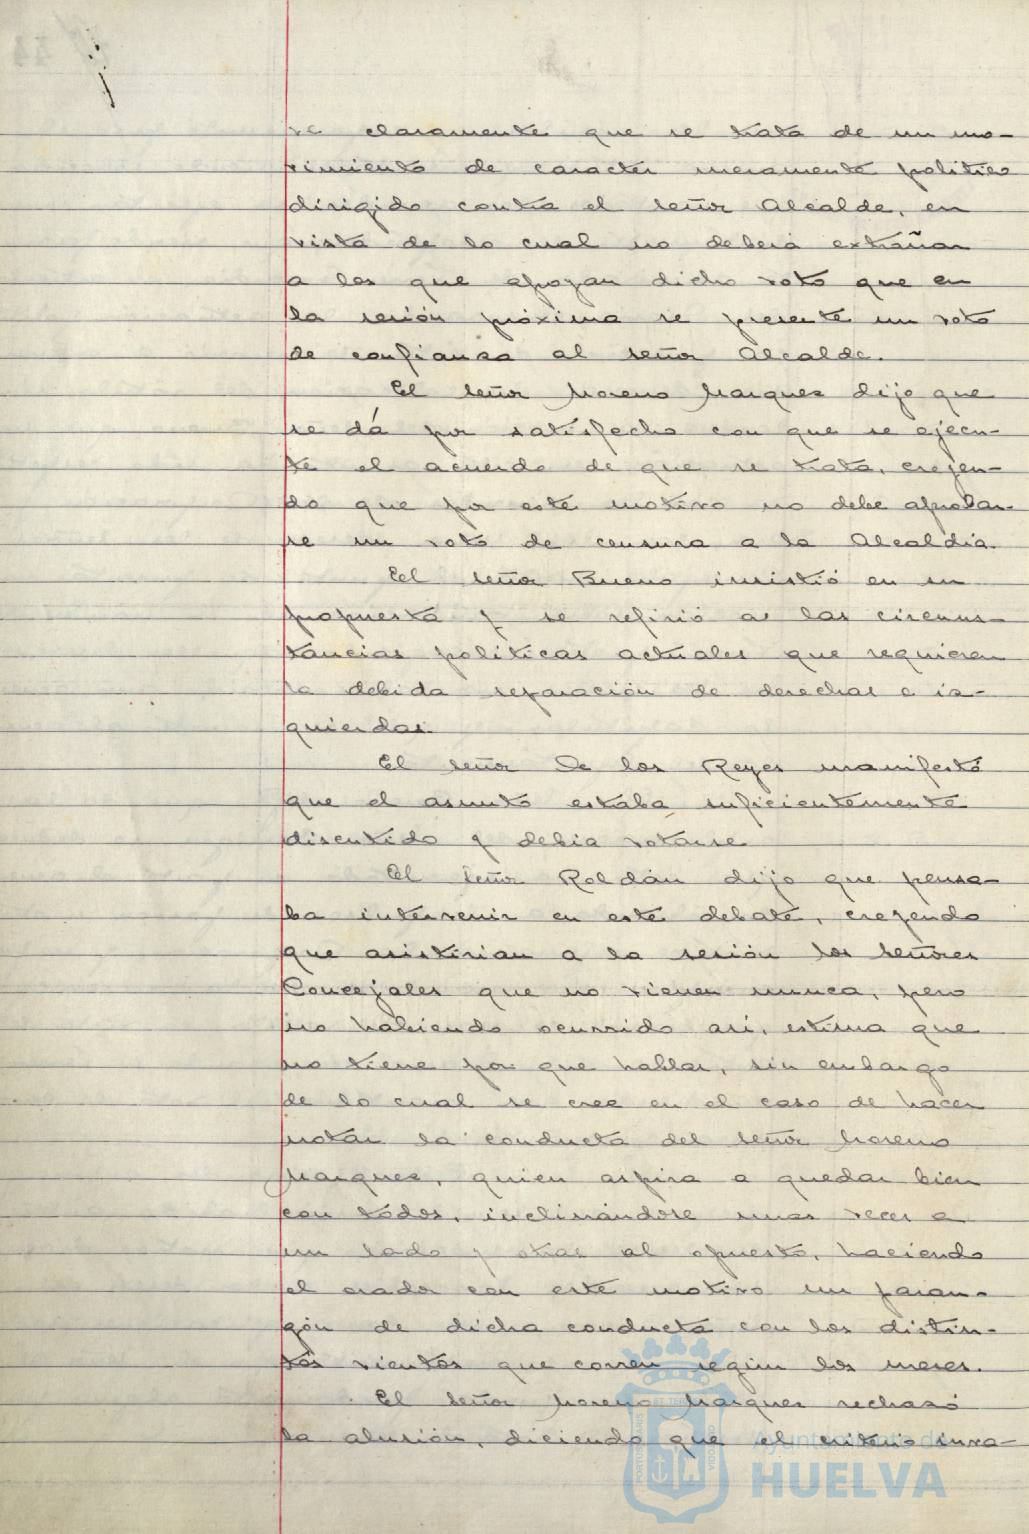 ve claramente que se trata de un mo-
vimiento de caracter meramente politico
dirigido contra el señor Alcalde, en
vista de lo cual no deberá extrañar
a los que apoyan dicho voto que en
la sesión próxima se presente un voto
de confianza al señor Alcalde.
El señor Moreno Marquez dijo que
se dá por satisfecho con que se ejecu-
te el acuerdo de que se trata, creyen-
do que por este motivo no debe aprobar-
se un voto de censura a la Alcaldia.
El señor Bueno insistió en su
propuesta y se refirió a las circuns-
tancias politicas actuales que requieren
la debida separación de derechas e iz-
quierdas.
El señor De los Reyes manifestó
que el asunto estaba suficientemente
discutido y debia votarse
El señor Roldán dijo que pensa-
ba intervenir en este debate, creyendo
que asistirian a la sesión los señores
Concejales que no vienen nunca, pero
no habiendo ocurrido asi, estima que
no tiene por que hablar, sin embargo
de lo cual se cree en el caso de hacer
notar la conducta del señor Moreno
Marquez, quien aspira a quedar bien
con todos, inclinándose unas veces a
un lado y otras al opuesto, haciendo
el orador con este motivo un paran-
gón de dicha conducta con los distin-
tos vientos que corren según los meses.
El señor Moreno Marquez rechazó
la alusión, diciendo que el criterio inva-
Ayuntamiento de
HUELVA